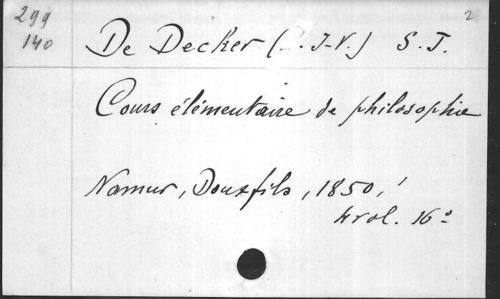 299
140
2
De Decker (... J-V.) S.J.
Cours élémentaire de philosophie
Namur, Douxfils, 1850,
4 vol. 16°